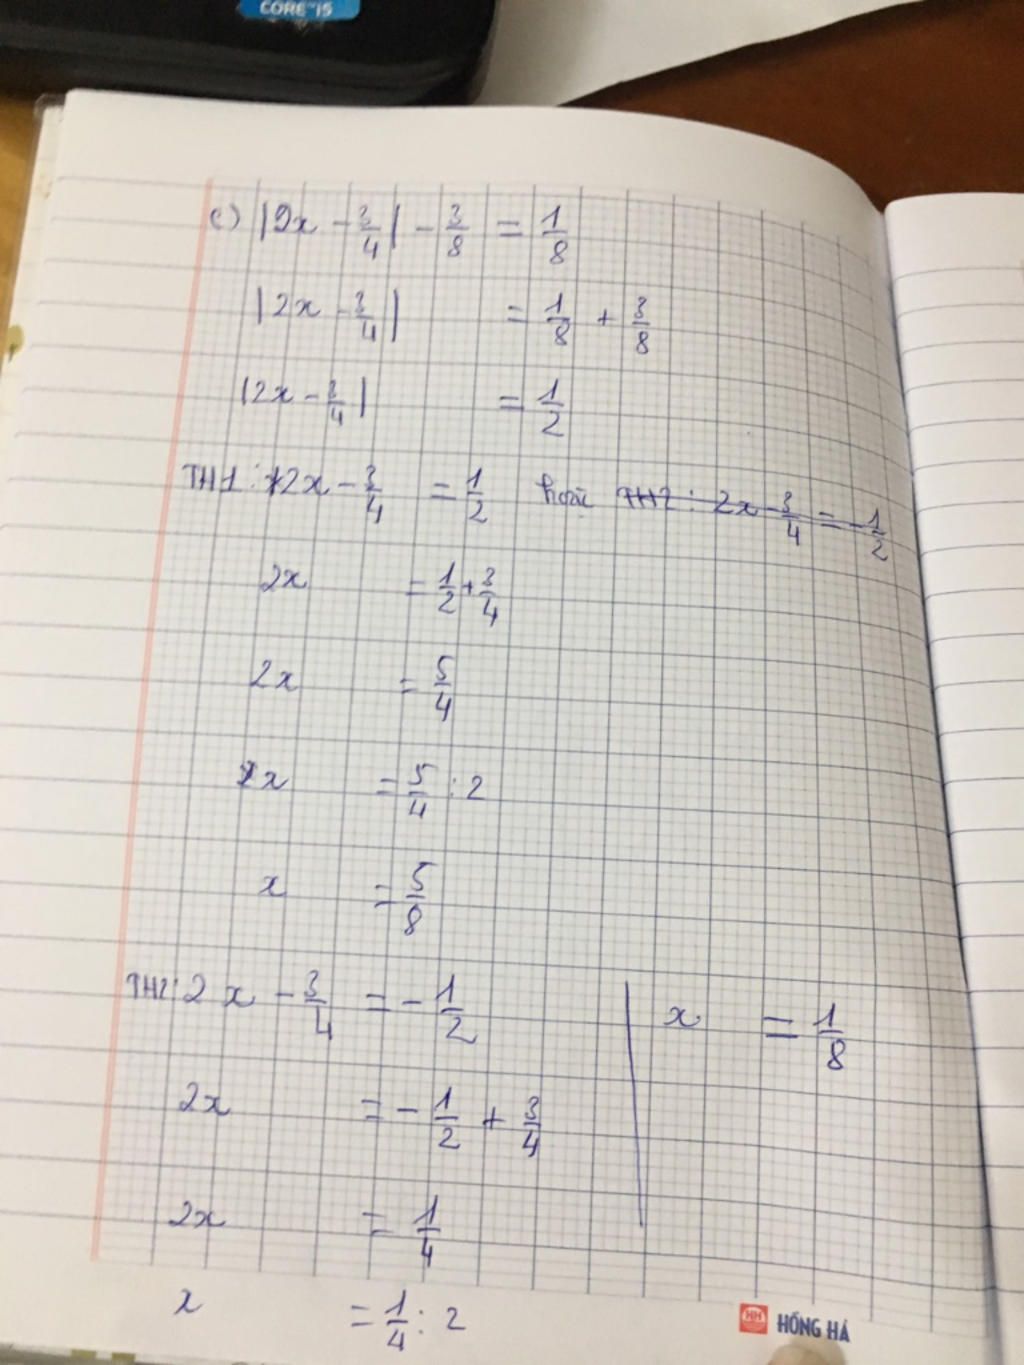 CORE i5
c) |2x - 3/4| - 3/8 = 1/8
|2x - 3/4| = 1/8 + 3/8
|2x - 3/4| = 1/2
TH1: 2x - 3/4 = 1/2 hoặc TH2: 2x - 3/4 = -1/2
2x = 1/2 + 3/4
2x = 5/4
x = 5/4 : 2
x = 5/8
TH2: 2x - 3/4 = -1/2
2x = -1/2 + 3/4
2x = 1/4
x = 1/4 : 2
x = 1/8
HH HỒNG HÀ